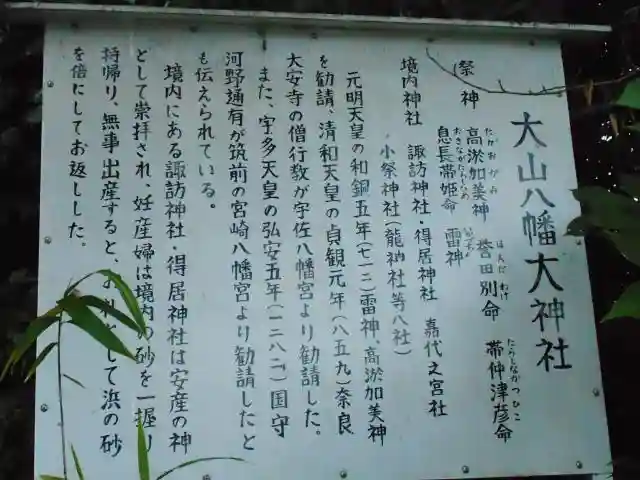 大山八幡大神社
(祭神
高淤加美神 誉田別命 帯仲津彦命
たかおかみ ほんだわけ たらしなかつひこ
息長帯姫命 雷神
おきながたらしひめ
境内神社 諏訪神社・得居神社 嘉代之宮社
小祭神社(龍神社等八社)
元明天皇の和銅五年(七一二)雷神、高淤加美神
を勧請、清和天皇の貞観元年(八五九)奈良
大安寺の僧行教が宇佐八幡宮より勧請した。
また、宇多天皇の弘安五年(一二八二)国守
河野通有が筑前の宮崎八幡宮より勧請したと
も伝えられている。
境内にある諏訪神社・得居神社は安産の神
として崇拝され、妊産婦は境内の砂を一握り
持帰り、無事出産すると、お礼として浜の砂
を倍にしてお返しした。